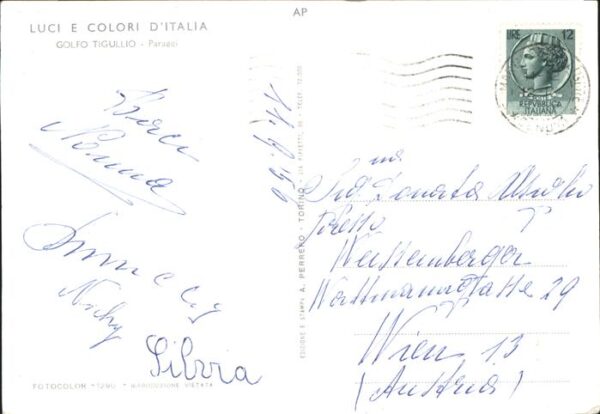 LUCI E COLORI D'ITALIA
GOLFO TIGULLIO - Paraggi
AP
LIRE 12
REPVBBLICA
ITALIANA
Baci
Nonna
Nicky
Silvia
11.6.56
EDIZIONE E STAMPA A. PERRERO - TORINO
Donata
presso
Weissenberger
Wattmanngasse 29
Wien 13
(Austria)
FOTOCOLOR - 1290 - RIPRODUZIONE VIETATA